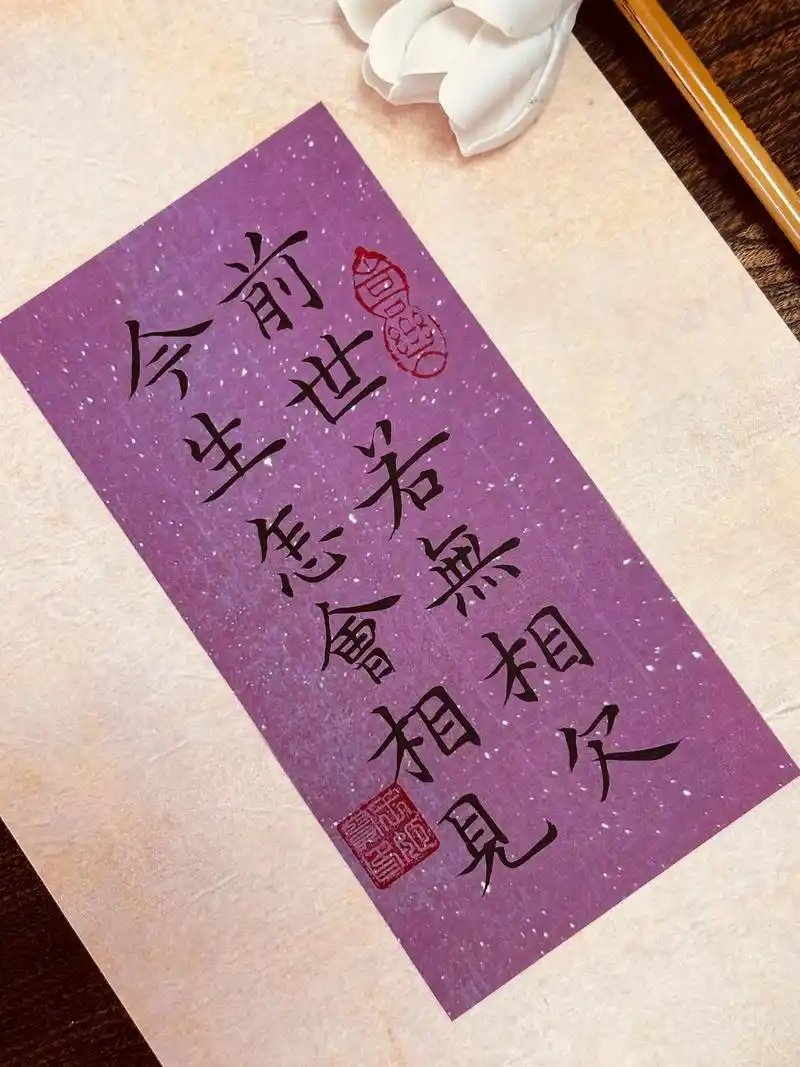 前世若無相欠
今生怎會相見